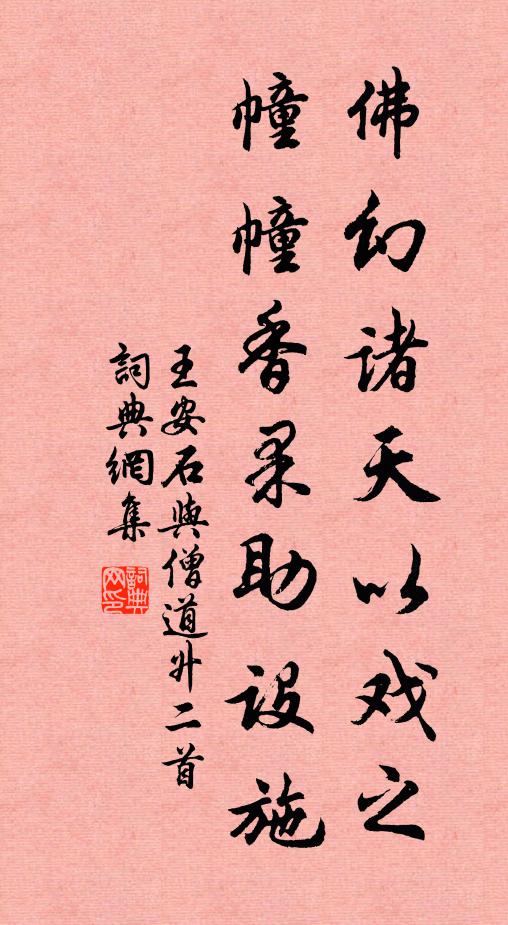 佛幻诸天以戏之
幢幢香果助設施
王安石與僧道升二首
詞典網集
詞典网印